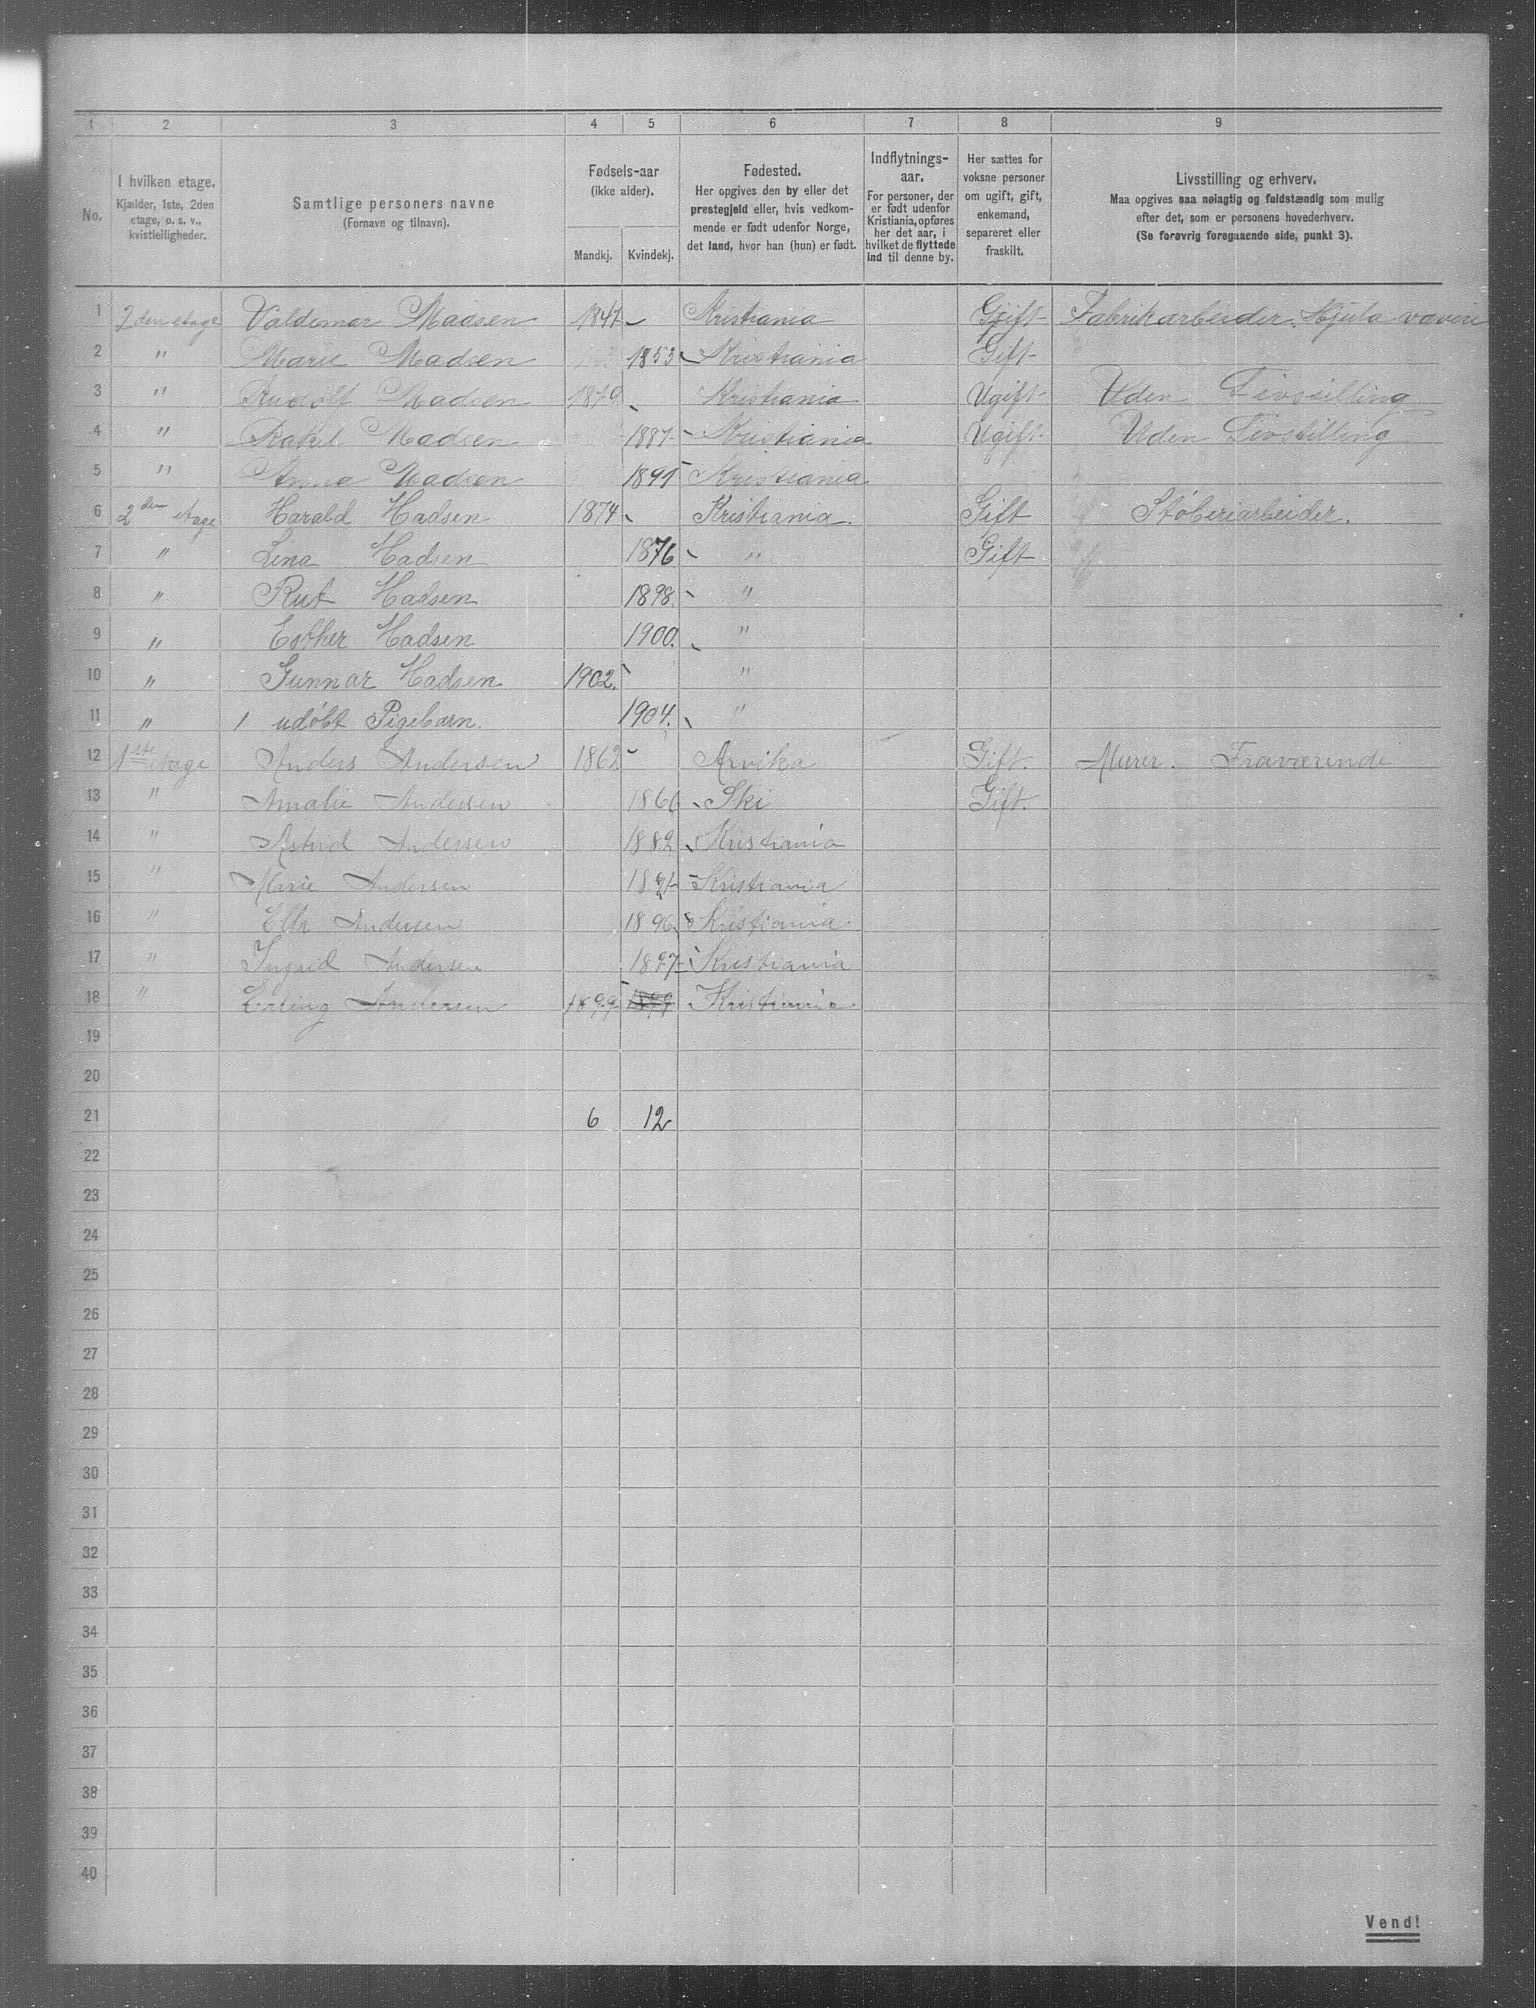 1 2 3 4 5 6 7 8 9
No.
I hvilken etage.
Kjælder, 1ste, 2den
etage, o. s. v.,
kvistleiligheder.
Samtlige personers navne
(Fornavn og tilnavn).
Fødsels-aar
(ikke alder).
Mandkj. Kvindekj.
Fødested.
Her opgives den by eller det
prestegjeld eller, hvis vedkom-
mende er født udenfor Norge,
det land, hvor han (hun) er født.
Indflytnings-
aar.
For personer, der
er født udenfor
Kristiania, opføres
her det aar, i
hvilket de flyttede
ind til denne by.
Her sættes for
voksne personer
om ugift, gift,
enkemand,
separeret eller
fraskilt.
Livsstilling og erhverv.
Maa opgives saa nøiagtig og fuldstændig som mulig
efter det, som er personens hovederhverv.
(Se forøvrig foregaaende side, punkt 3).
1 2den etage Valdemar Madsen 1847 Kristiania Gift Fabrikarbeider. Hjula væveri
2 " Marie Madsen 1853 Kristiania Gift
3 " Rudolf Madsen 1879 Kristiania Ugift Uden Livsstilling
4 " Rakel Madsen 1887 Kristiania Ugift Uden Livstilling
5 " Anna Madsen 1891 Kristiania
6 2den etage Harald Hadsen 1874 Kristiania. Gift Støberiarbeider.
7 " Lina Hadsen 1876 " Gift
8 " Rut Hadsen 1898. "
9 " Esther Hadsen 1900. "
10 " Gunnar Hadsen 1902. "
11 " 1 udøbt Pigebarn. 1904. "
12 1ste etage Anders Andersen 1862 Arvika Gift. Murer. Fraværende
13 " Amalie Andersen 1866 Ski Gift.
14 " Astrid Andersen 1889 Kristiania
15 " Marie Andersen 1891 Kristiania
16 " Andersen 1896 Kristiania
17 " Ingrid Andersen 1897 Kristiania
18 " Erling Andersen 1899 1899 Kristiania
19
20
21 6 12
22
23
24
25
26
27
28
29
30
31
32
33
34
35
36
37
38
39
40
Vend!